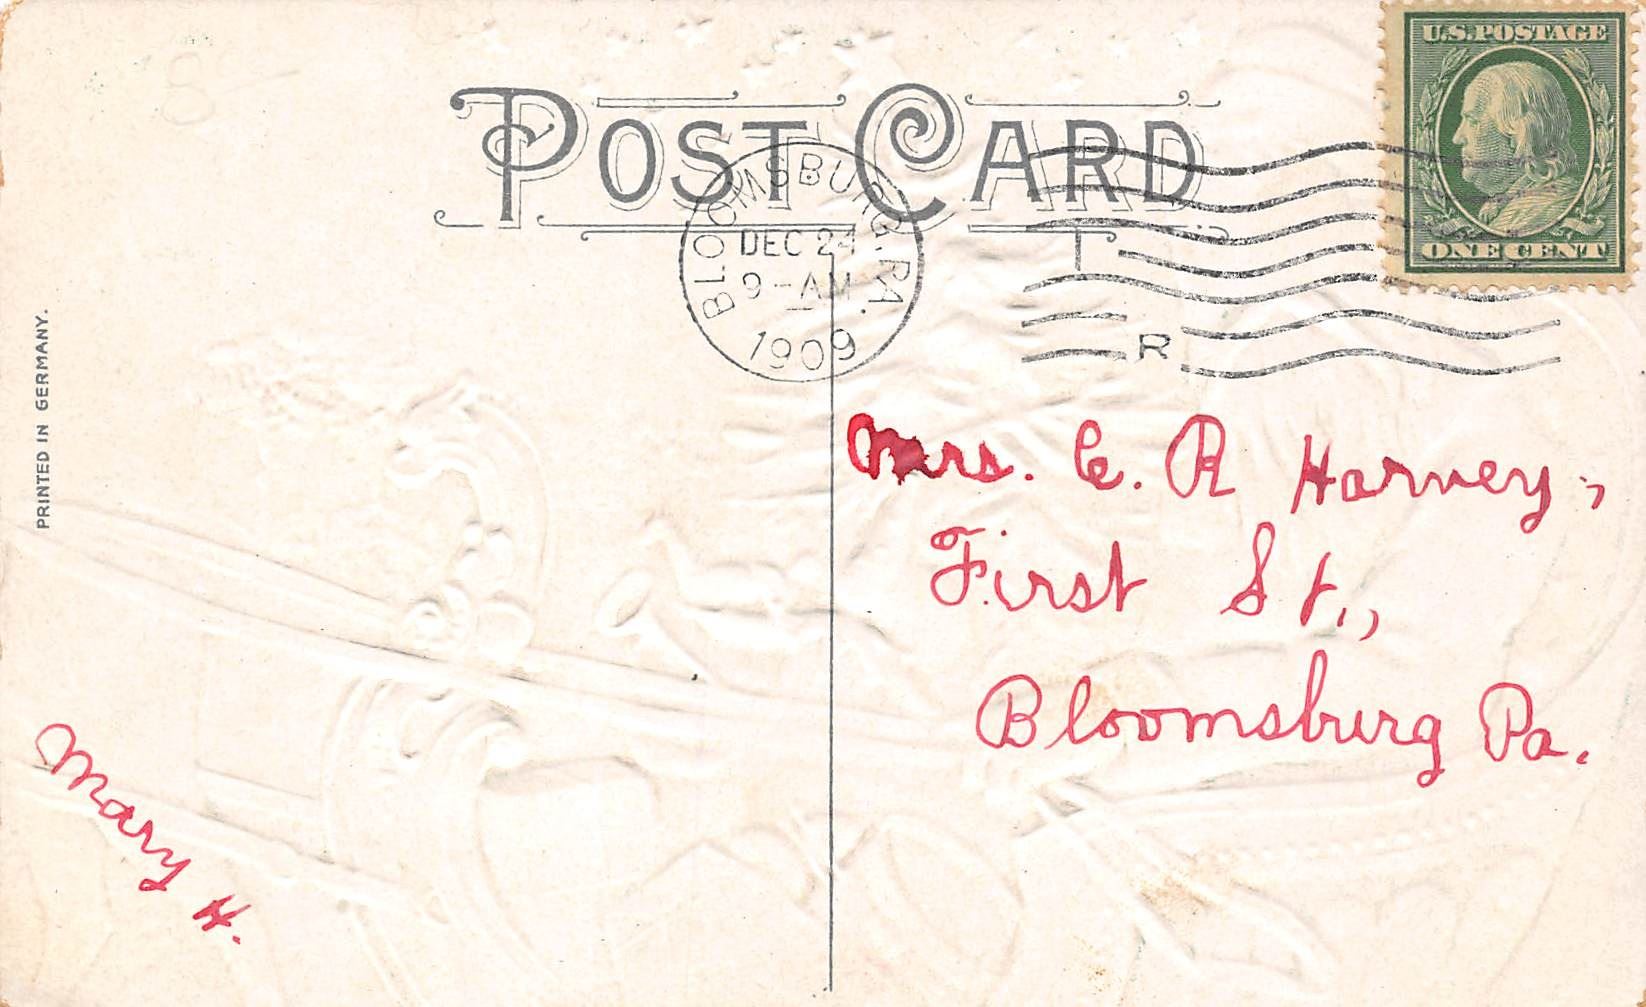 8
POST CARD
U.S. POSTAGE
ONE CENT
BLOOMSBURG. PA.
DEC 24
9-AM
1909
T
R
PRINTED IN GERMANY.
Mrs. C. R Harvey,
First St.,
Bloomsburg Pa.
Mary H.